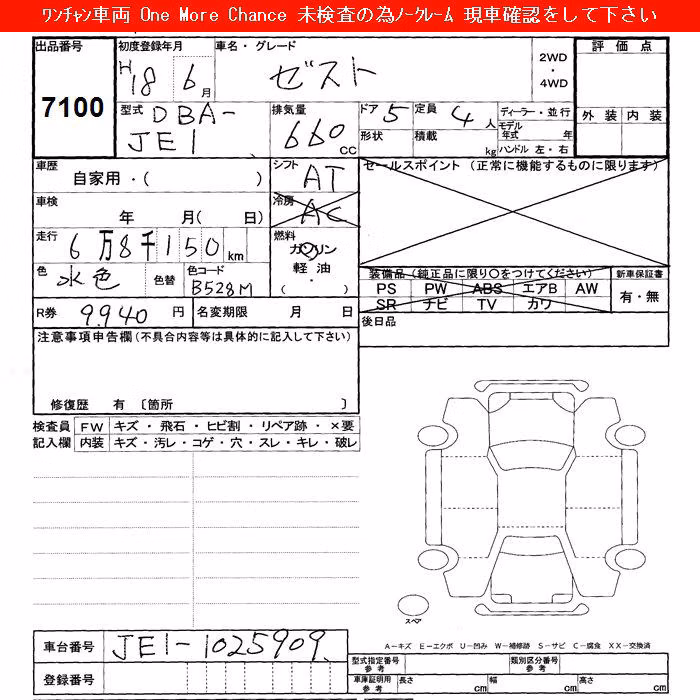 ﾜﾝﾁｬﾝ車両 One More Chance 未検査の為ﾉｰｸﾚｰﾑ 現車確認をして下さい
出品番号 初度登録年月 車名・グレード 2WD・4WD 評価点
7100 H18 6月 ゼスト
型式 DBA-JE1 排気量 660cc ドア 5 定員 4人 ディーラー・並行 外装 内装
形状 積載 kg モデル年式 年 ハンドル 左・右
車歴 自家用・( ) シフト AT セールスポイント (正常に機能するものに限ります)
車検 年 月( 日) 冷房 AC
走行 6万8千150km 燃料 ガソリン 軽油・( )
色 水色 色替 色コード B528M 装備品 (純正品に限り○をつけてください) 新車保証書
PS PW ABS エアB AW 有・無
SR ナビ TV カワ
R券 9,940円 名変期限 月 日 後日品
注意事項申告欄 (不具合内容等は具体的に記入して下さい)
修復歴 有 〔箇所 〕
検査員 FW キズ・飛石・ヒビ割・リペア跡・×要
記入欄 内装 キズ・汚レ・コゲ・穴・スレ・キレ・破レ
スペア
A－キズ E－エクボ U－凹み W－補修跡 S－サビ C－腐食 XX－交換済
車台番号 JE1-1025909
登録番号
型式指定番号 参考 類別区分番号 参考
車庫証明用 参考 長さ cm 幅 cm 高さ cm